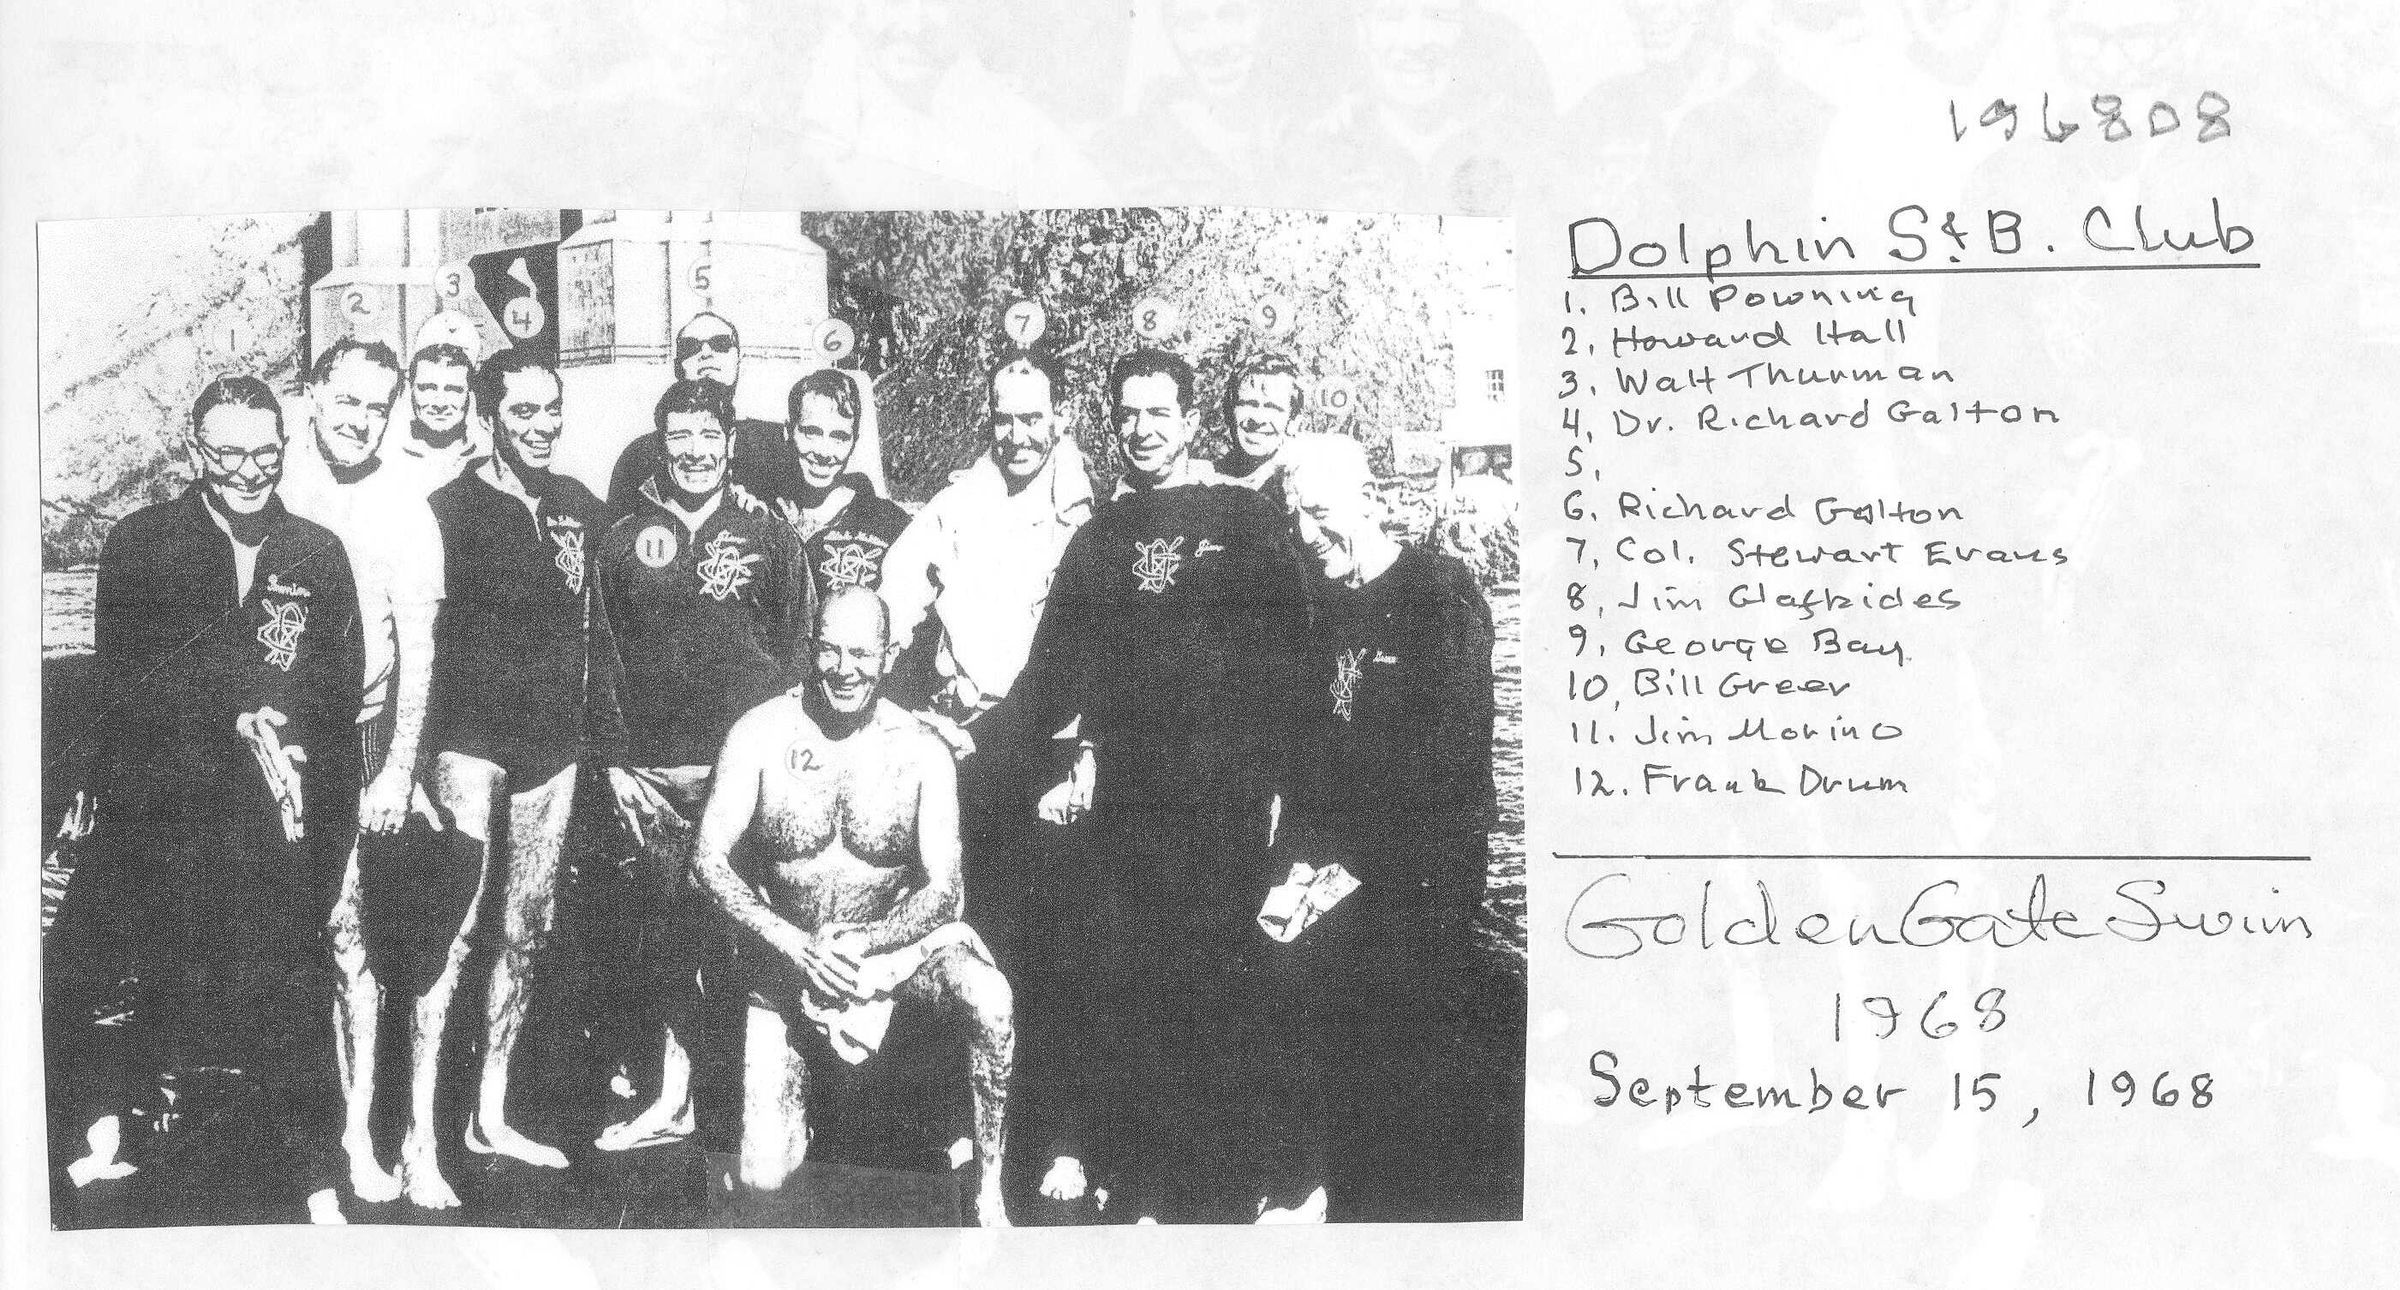 196808
Dolphin S & B. Club
1. Bill Powning
2. Howard Hall
3. Walt Thurman
4. Dr. Richard Galton
5.
6. Richard Galton
7. Col. Stewart Evans
8. Jim Glafkides
9. George Bay
10. Bill Greer
11. Jim Morino
12. Frank Drum
Golden Gate Swim
1968
September 15, 1968
1
2
3
4
5
6
7
8
9
10
11
12